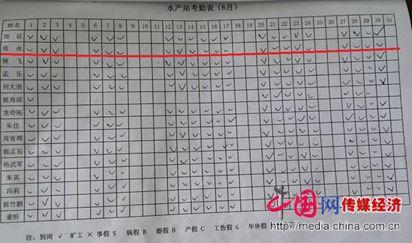 水产站考勤表（6月）
姓名 1 2 3 4 5 6 7 8 9 10 11 12 13 14 15 16 17 18 19 20 21 22 23 24 25 26 27 28 29 30 31
郑征
熊永
侯飞
孟乐
刘大渔
龙奇阳
朱佳
周青辉
郭志石
杨武军
朱英
冯莉
郭竹鹏
董盼
注：到岗 √ 旷工 × 事假 S 病假 B 婚假 H 产假 C 工伤假 G 年休假
中国网传媒经济
http://media-china.com.cn